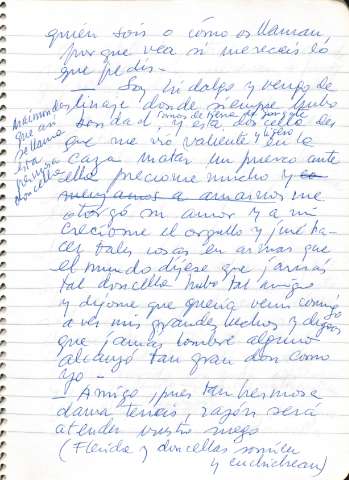 quién sois o cómo os llaman,
porque vea si mereceis lo
que pedís.
— Soy hidalgo y vengo de
linaje donde siempre hubo
bondad, y esta doncella des
que me vio valiente en la
y ligero
caza matar un puerco ante
ella preciome mucho y
me
otorgó su amor y a mí
creciome el orgullo y juré ha-
cer tales cosas en armas que
el mundo dijese que jamás
tal doncella hubo tal amigo
y díjome que quería venir conmigo
a ver mis grandes hechos y
que jamás hombre alguno
alcanzó tan gran don como
yo —
— Amigo, pues tan hermosa
dama teneis, razón será
atender vuestro ruego
(Flérida y doncellas sonríen
y cuchichean)
que así
se llama
esta
hermosa
doncella